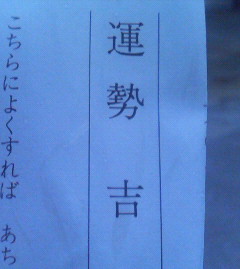 運勢 吉
こちらによくすれば あち